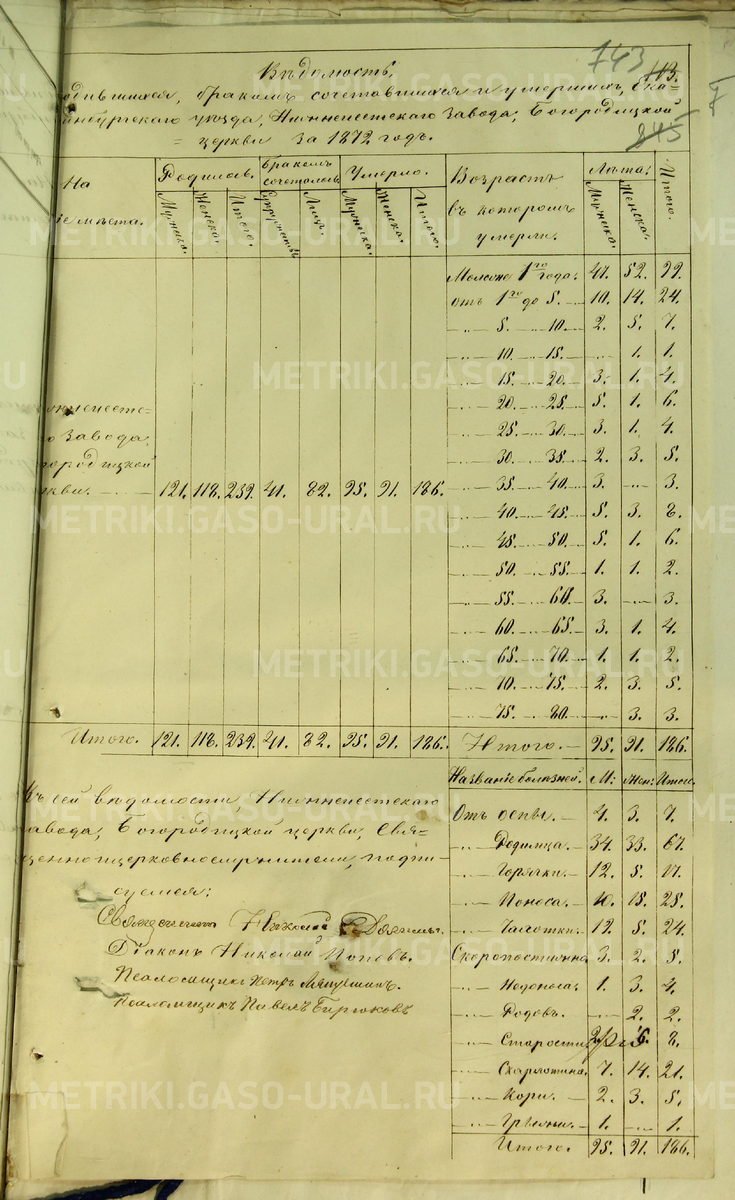 743 113.
Вѣдомость,
одившихся, бракомъ сочетавшихся и умершихъ, Ека-
инбургскаго уѣзда, Нязепетровскаго Завода, Богородицкой
церкви за 1872 годъ.
845
Родилось. Бракомъ сочеталось Умерло. Возрастъ въ которомъ умерли. Лѣта: Итого.
На
Мужеска. Женска. Итого. Лицъ. Мужеска. Женска. Итого. Мужеска. Женска.
Менѣе 1го года. 47. 52. 99.
отъ 1го до 5. 10. 14. 24.
5. 10. 2. 5. 7.
10. 15. — 1. 1.
15. 20. 3. 1. 4.
20. 25. 5. 1. 6.
25. 30. 3. 1. 4.
30. 35. 2. 3. 5.
35. 40. 3. — 3.
40. 45. 5. 3. 8.
45. 50. 5. 1. 6.
50. 55. 1. 1. 2.
55. 60. 3. — 3.
60. 65. 3. 1. 4.
65. 70. 1. 1. 2.
10. 75. 2. 3. 5.
75. 80. — 3. 3.
завода,
121. 118. 239. 41. 82. 95. 91. 186.
Итого. 121. 118. 239. 41. 82. 95. 91. 186. Итого. 95. 91. 186.
Названіе болѣзней. М: Жен: Итого.
Къ сей вѣдомости,
авода, Богородицкой церкви, Свя-
щенноцерковнослужители, подпи-
суемся:
Священникъ Николай
Діаконъ Николай Поповъ.
Псаломщикъ Петръ
Псаломщикъ Павелъ Бирюковъ
Отъ оспы. 4. 3. 7.
Родимца. 34. 33. 67.
Горячки. 12. 5. 17.
Поноса. 10. 15. 25.
Чахотки. 19. 5. 24.
Скоропостижно 3. 2. 5.
Недоноса. 1. 3. 4.
Родовъ. — 2. 2.
Старости. 2. 6. 8.
Скарлатина. 7. 14. 21.
Кори. 2. 3. 5.
Грыжи. 1. — 1.
Итого. 95. 91. 186.
METRIKI.GASO-URAL.RU